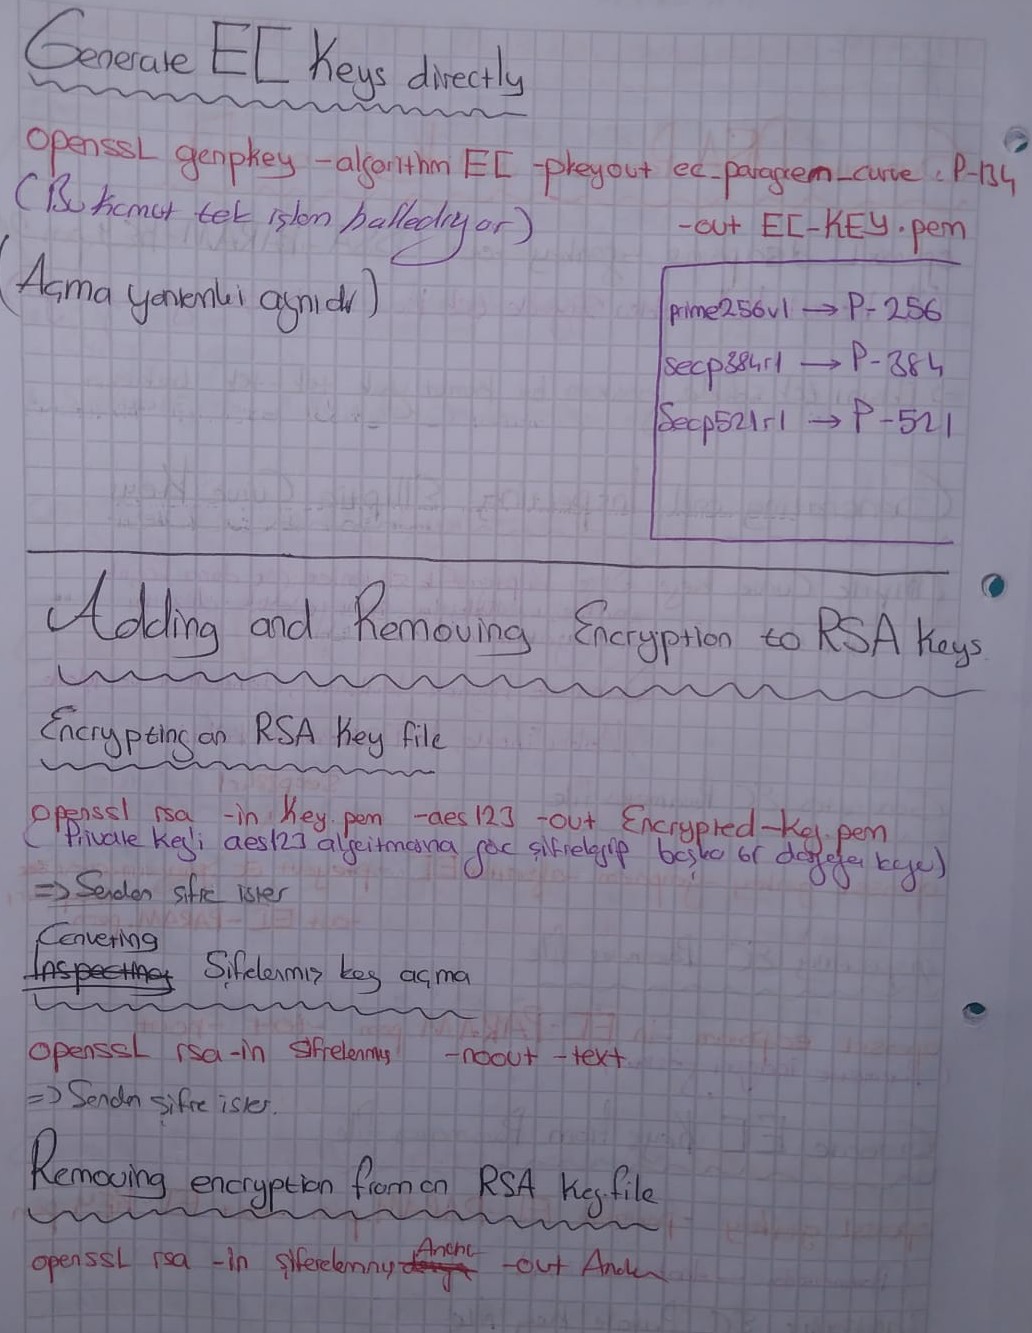 Generate EC Keys directly
openssL genpkey -algorithm EC -pkeyout ec_paragrem_curve : P-134
(Bu komut tek işlem hallediyor)
-out EC-KEY.pem
(Açma yöntemleri aynıdır)
prime256v1 → P-256
secp384r1 → P-384
Secp521r1 → P-521
Adding and Removing Encryption to RSA Keys
Encrypting an RSA Key file
openssl rsa -in Key.pem -aes123 -out Encrypted-Key.pem
(Private Key'i aes123 göre şifreleyip başka bir)
=> Senden sifre ister
Converting
Şifrelenmiş key açma
openssL rsa -in şifrelenmiş -noout -text
=> Senden şifre ister.
Removing encryption from an RSA Key file
openssL rsa -in -out